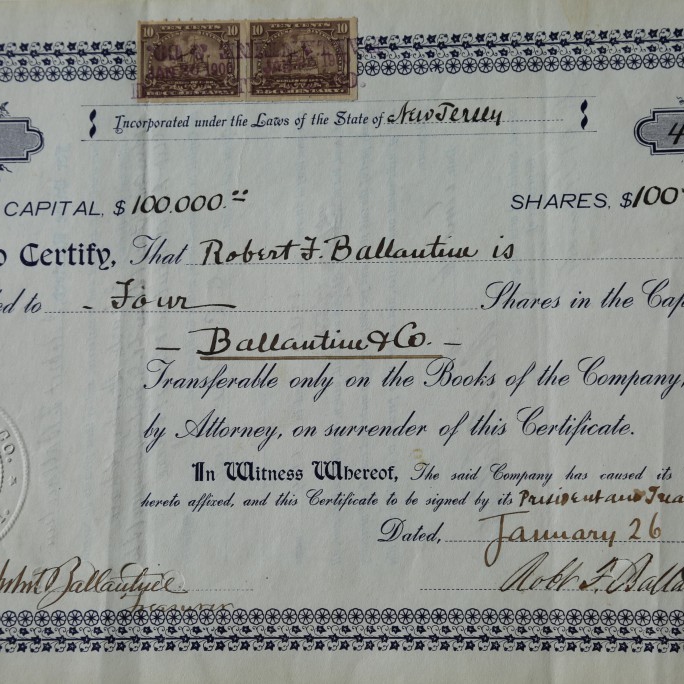 TEN CENTS TEN CENTS
10 10 10 10
JAN 26 190
DOCUMENTARY
Incorporated under the Laws of the State of New Jersey
4
CAPITAL, $ 100.000.00 SHARES, $100
o Certify, That Robert F. Ballantine is
ed to - Four Shares in the Cap
- Ballantine & Co. -
Transferable only on the Books of the Company,
by Attorney, on surrender of this Certificate.
In Witness Whereof, The said Company has caused its
hereto affixed, and this Certificate to be signed by its President and Trea
CO.
Dated, January 26
Ballantine Robt F. Balla
Treasurer